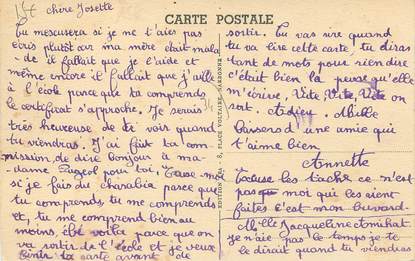 chère Josette
CARTE POSTALE
Tu mescusera si je ne t'aies pas
écris plutôt car ma mère était mala-
de il fallait que je l'aide et
même encore il fallait que j'aille
à l'école parce que tu comprends
le certificat s'approche. Je serais
très heureuse de te voir quand
tu viendras. J'ai fait ta com-
mission, de dire bonjour à ma-
dame Pujol pour toi.
si je fais du charabia parce que
tu comprends, tu me comprends
et, tu me comprend bien au
moins, ébé voilà parce que on
va sortir de l'école et je veux
finir ta carte avant de
sortir. Tu vas rire quand
tu va lire cette carte, tu diras
tant de mots pour rien dire
c'était bien la peine qu'elle
m'écrive, Vite, Vite, Vite on
sort. Adieu. Mille
baisers d'une amie qui
t'aime bien
Annette
Excuse les tache ce n'est
pas moi qui les aient
faites c'est mon buvard
Mlle Jacqueline
je n'aie pas le temps je te
le dirait quand tu viendras
8, PLACE VOLTAIRE,